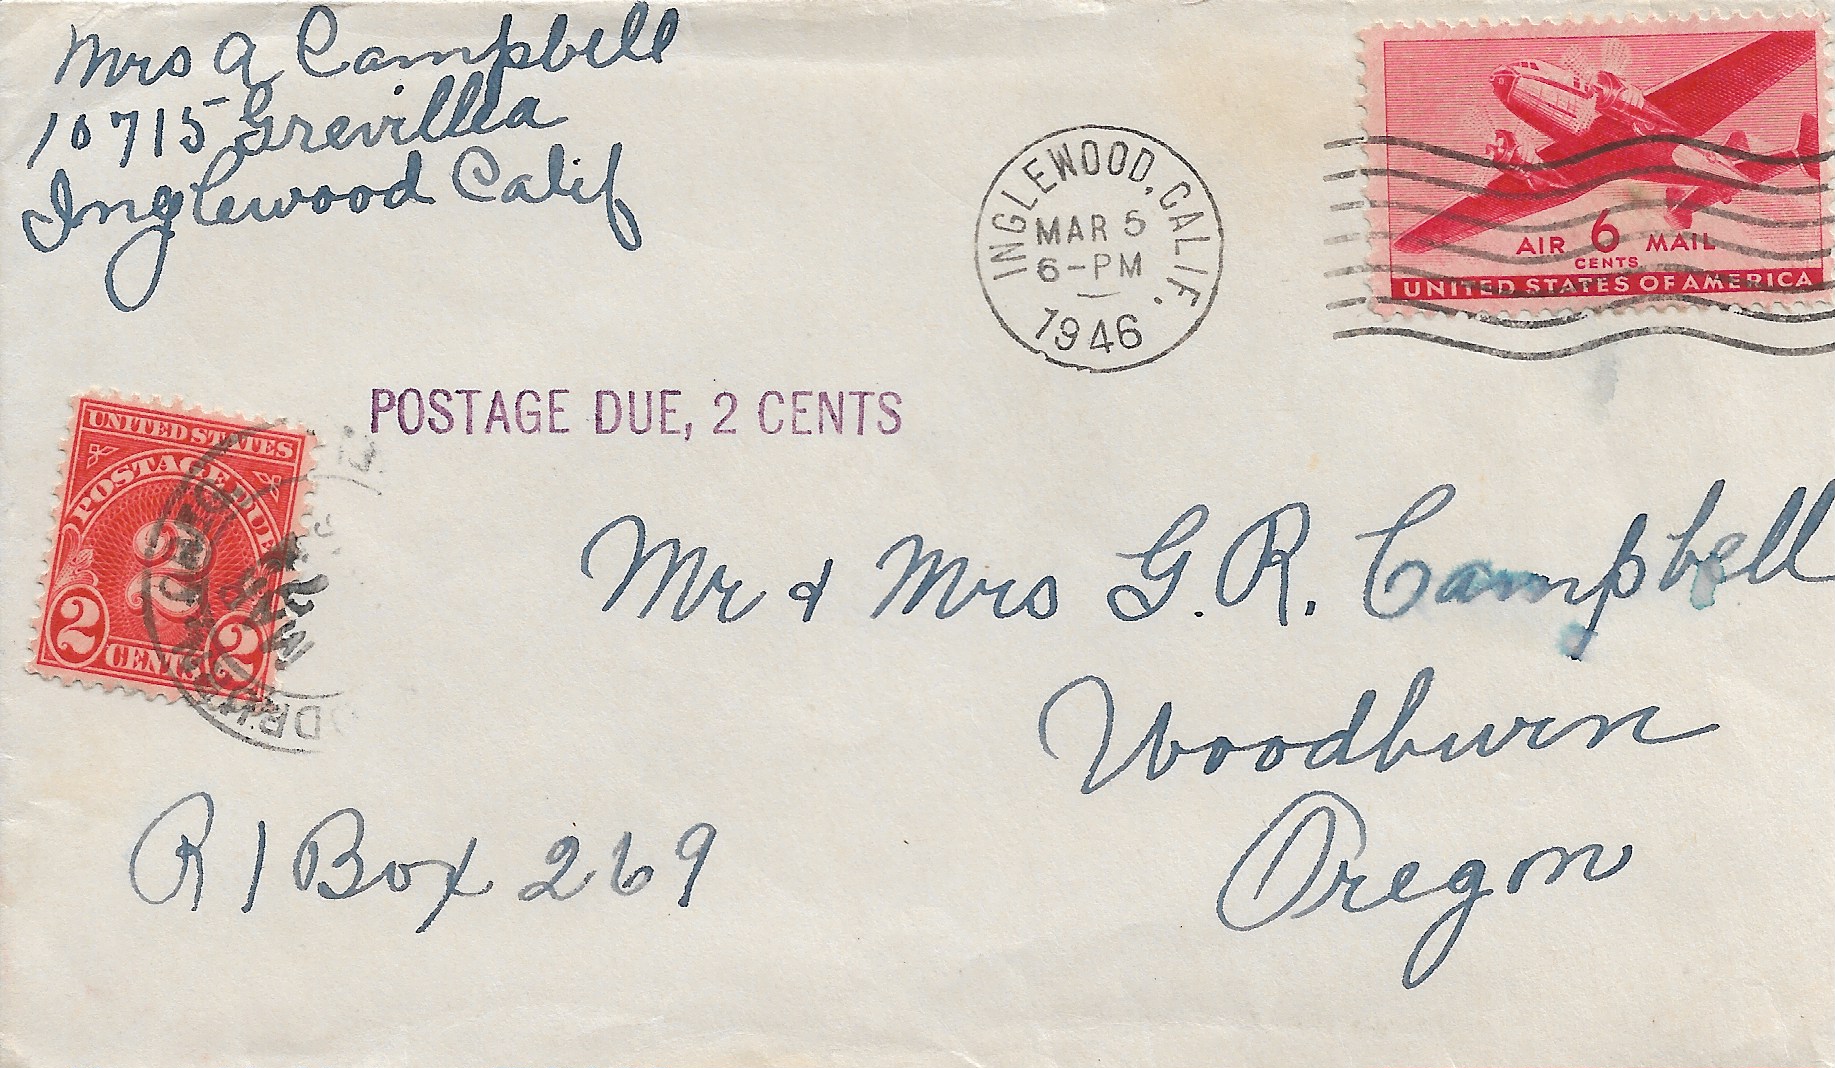 Mrs A Campbell
10715 Grevillea
Inglewood Calif
INGLEWOOD, CALIF.
MAR 5
6-PM
1946
AIR 6 MAIL
CENTS
UNITED STATES OF AMERICA
POSTAGE DUE, 2 CENTS
UNITED STATES
POSTAGE DUE
2
2 CENTS 2
Mr & Mrs G. R. Campbell
Woodburn
Oregon
R 1 Box 269